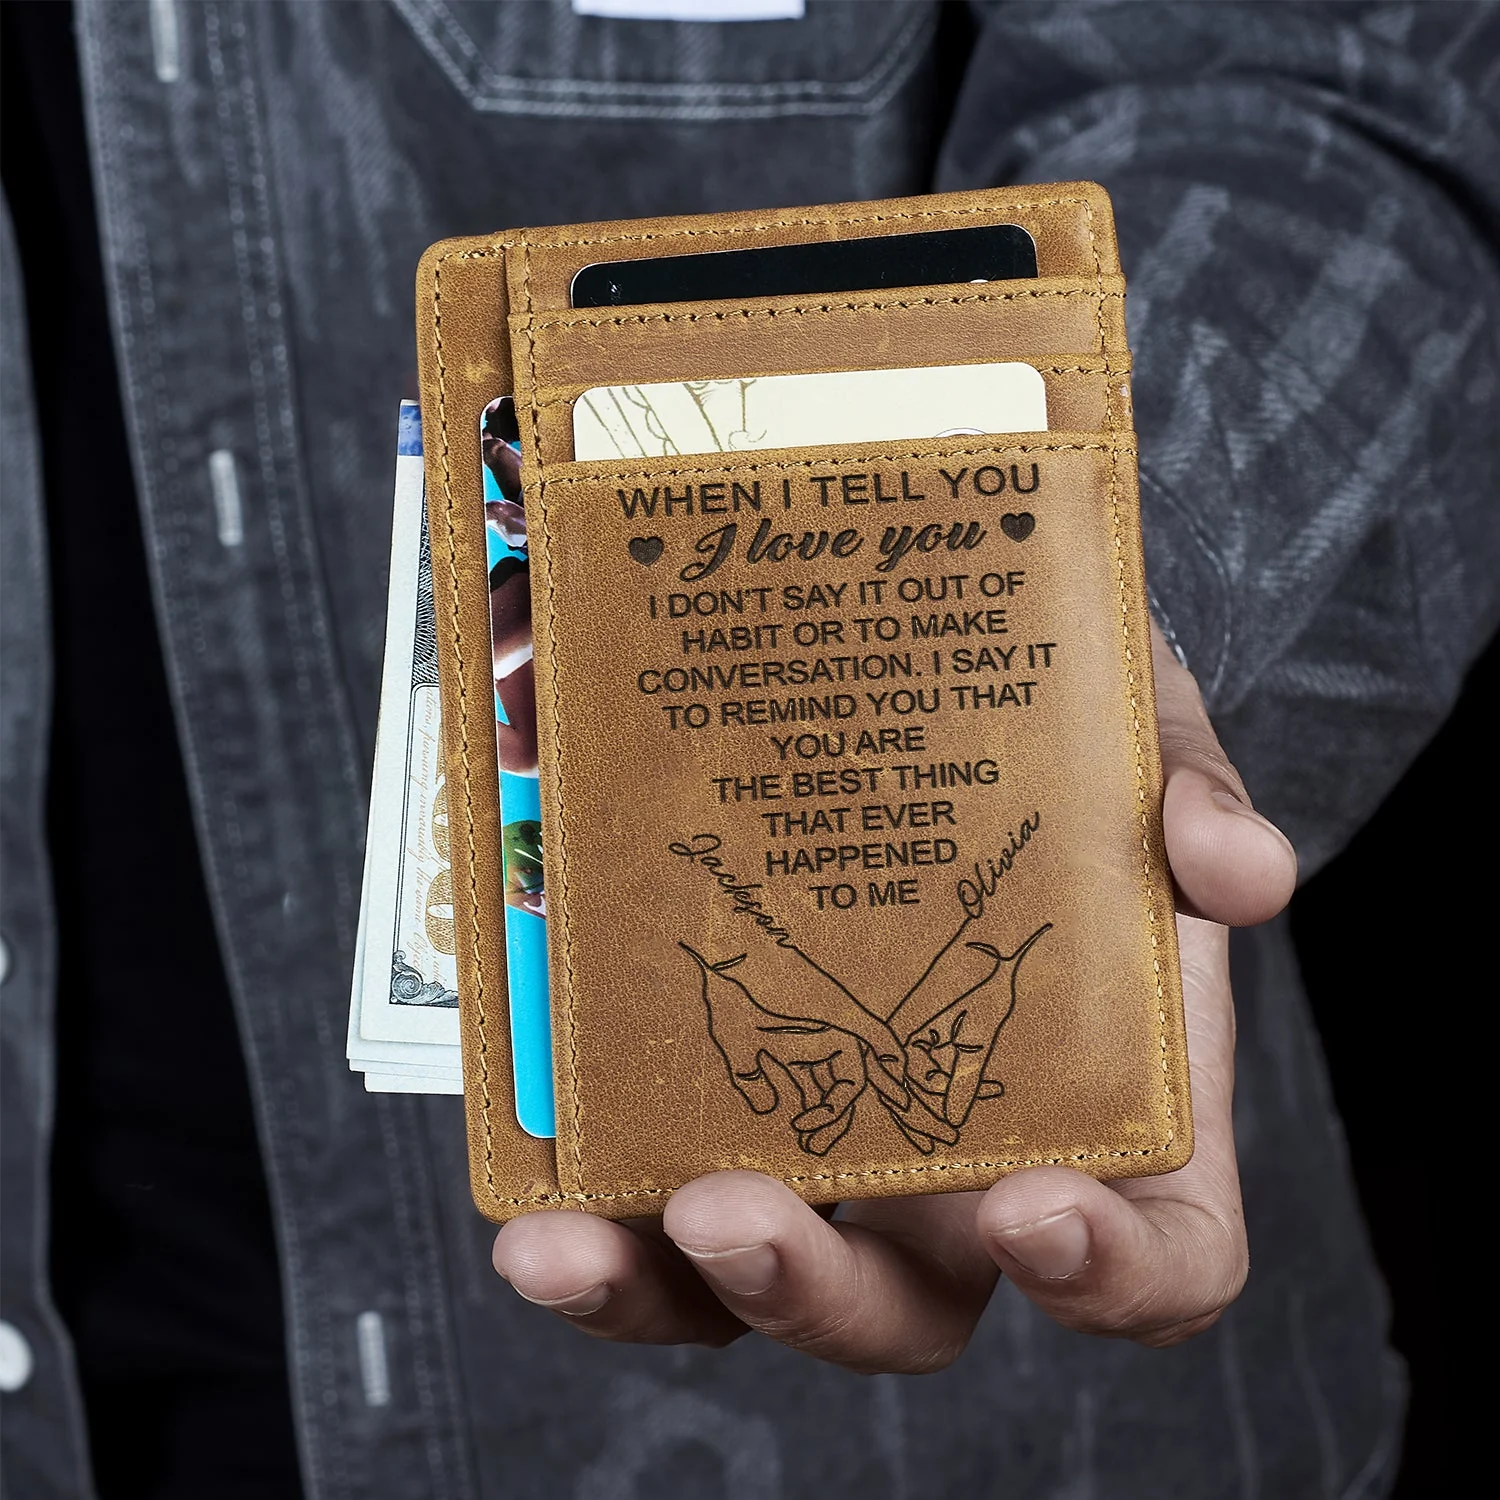 WHEN I TELL YOU
I love you
I DON'T SAY IT OUT OF
HABIT OR TO MAKE
CONVERSATION. I SAY IT
TO REMIND YOU THAT
YOU ARE
THE BEST THING
THAT EVER
HAPPENED
TO ME
Jackson
Olivia